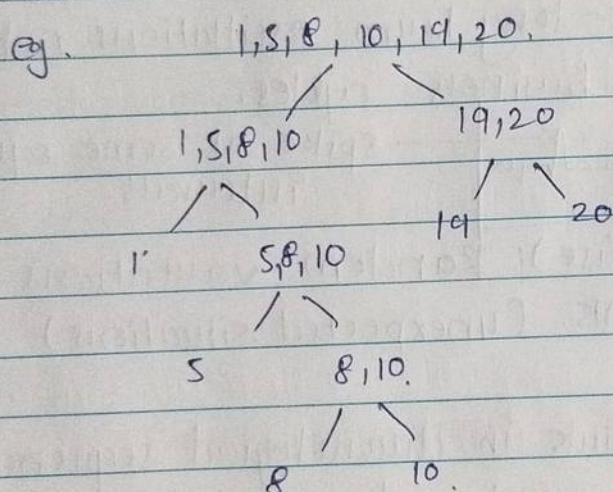 eg. 1,5,8,10,19,20.
1,5,8,10 19,20
19 20
1 5,8,10
5 8,10.
8 10.